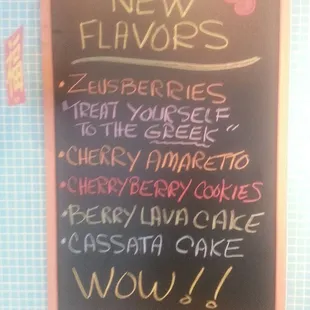 NEW
FLAVORS
• ZEUSBERRIES
"TREAT YOURSELF
TO THE GREEK"
• CHERRY AMARETTO
• CHERRYBERRY COOKIES
• BERRY LAVA CAKE
• CASSATA CAKE
WOW!!